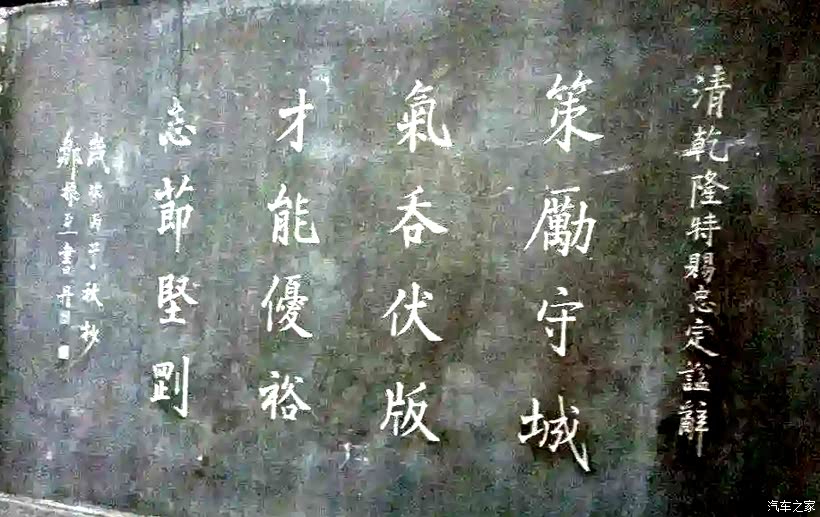 清乾隆特賜忠定謚辭
策勵守城
氣吞伏版
才能優裕
志節堅剛
歲次丙子秋抄
鄭振書丹
汽车之家